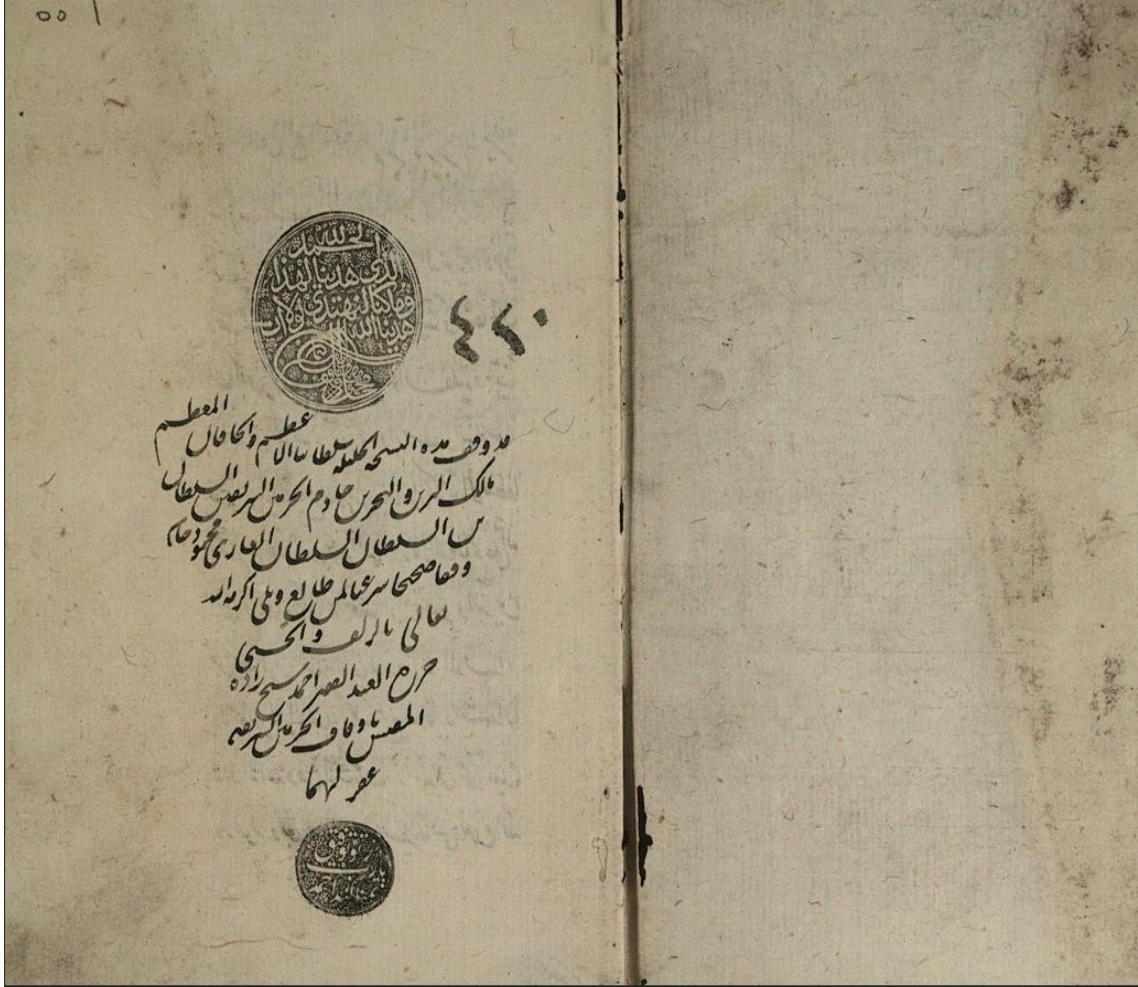 ٥٥ ١
الحمد لله
الذي هدينا لهذا
وما كنا لنهتدي لولا ان
هدينا الله
٤٢٠
قد وقف هذه النسخة الجليلة سلطاننا الاعظم والخاقان المعظم
مالك البرين والبحرين خادم الحرمين الشريفين السلطان
بن السلطان السلطان الغازى محمود خان
وقفا صحيحا شرعيا لمن طالع اكرمه الله
تعالى بالزلف والحسنى
حرره العبد الفقير احمد شيخ زاده
المفتش باوقاف الحرمين الشريفين
غفر لهما
توفيق
يا رب
احمد